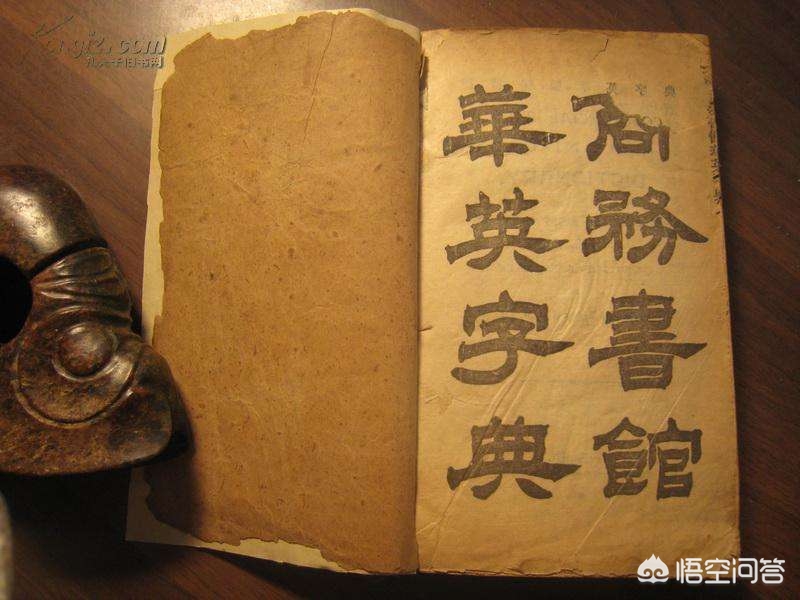 商務書館
華英字典
孔夫子旧书网
悟空问答